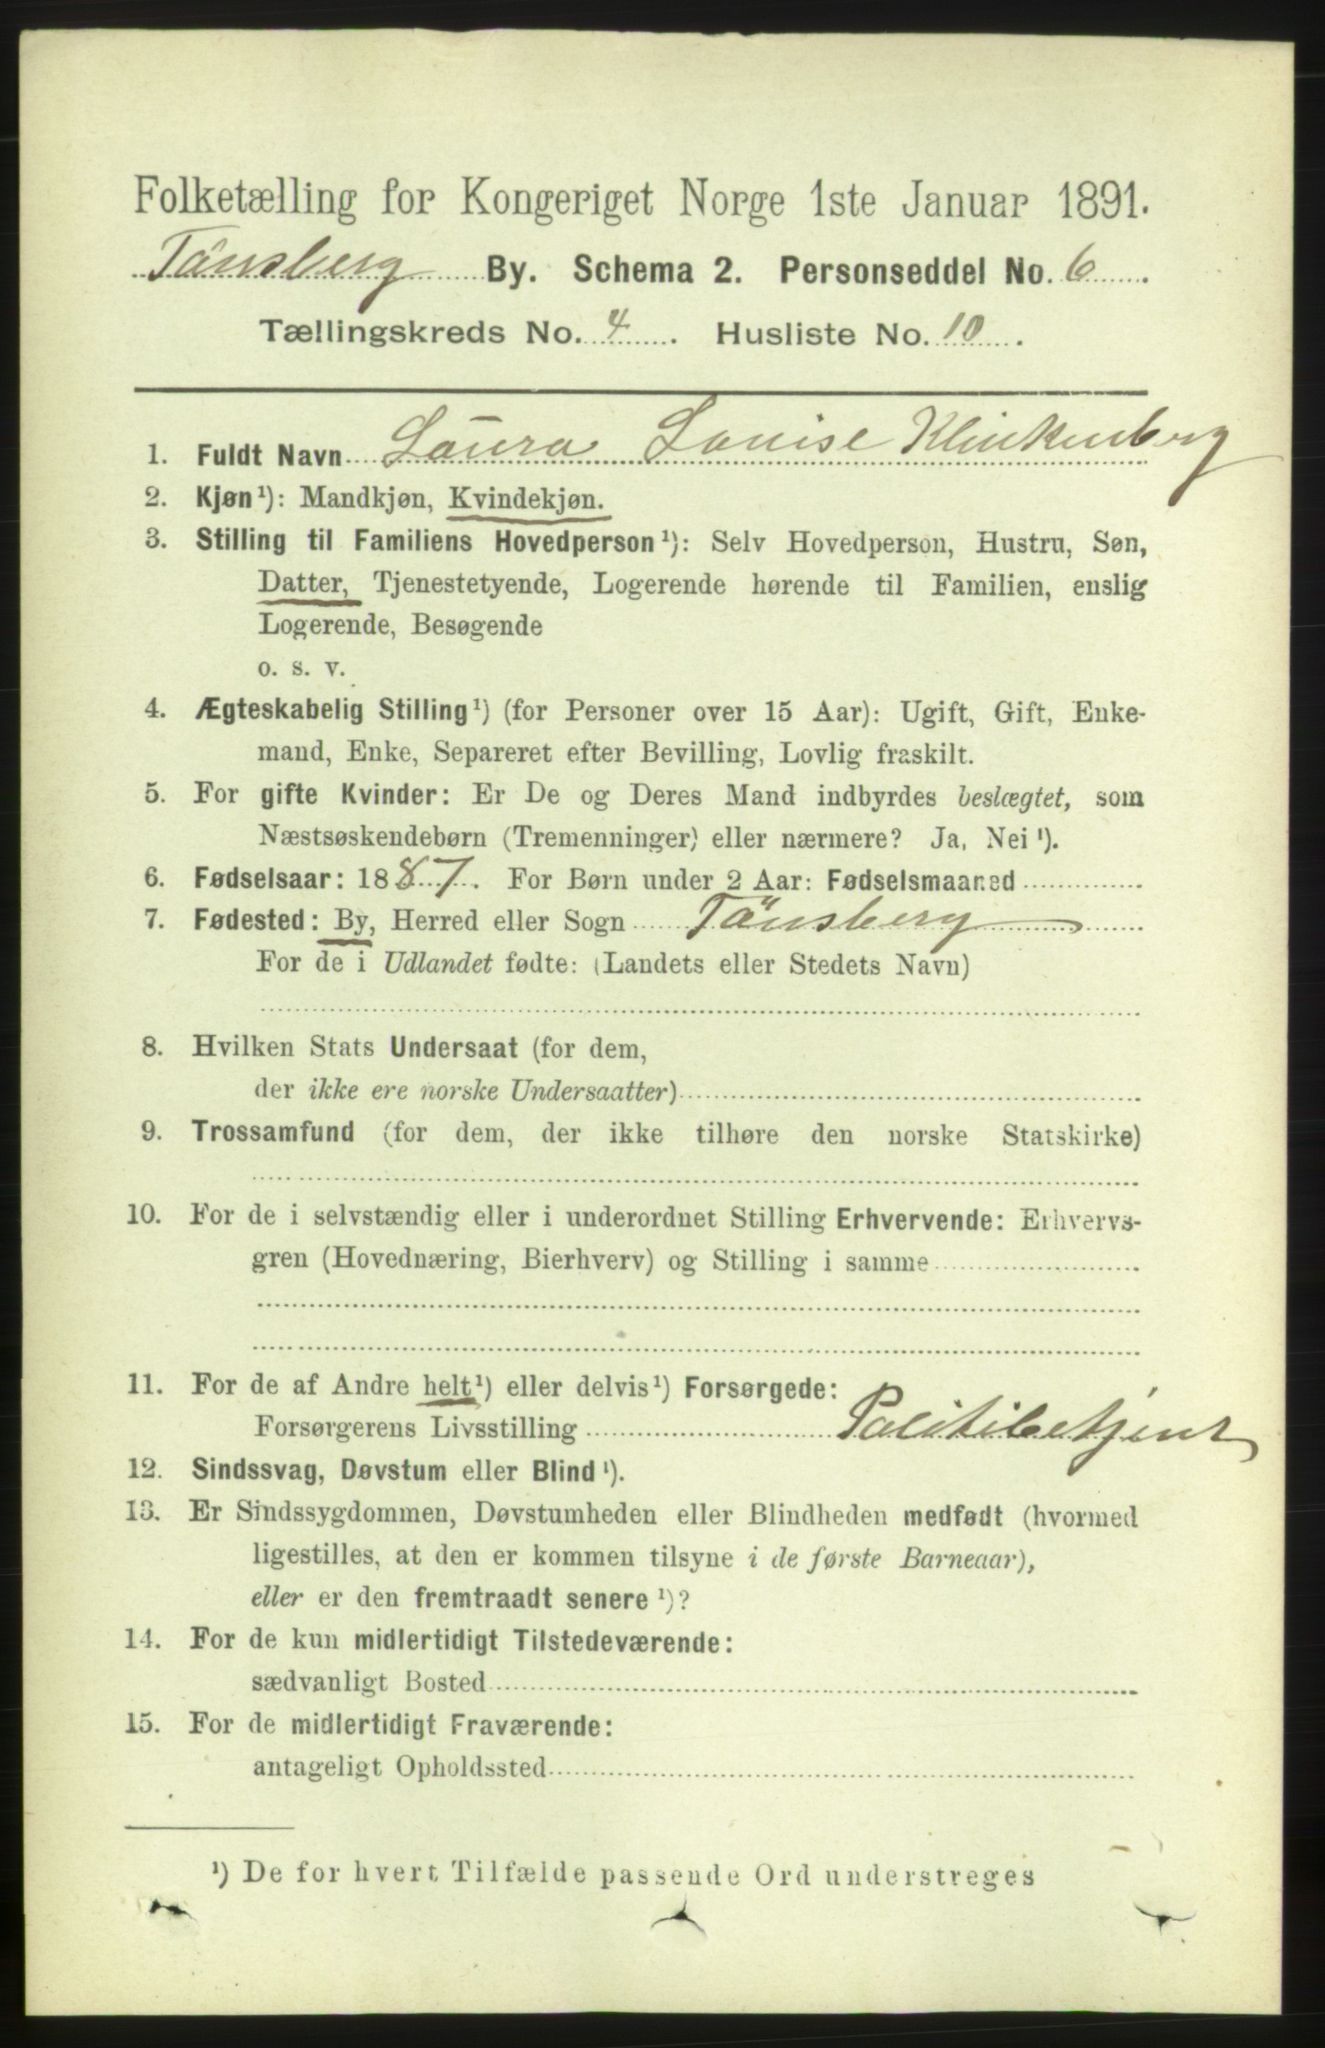 Folketælling for Kongeriget Norge 1ste Januar 1891.
Tönsberg By. Schema 2. Personseddel No. 6.
Tællingskreds No. 4. Husliste No. 10.
1. Fuldt Navn Laura Louise Klinkenberg
2. Kjøn¹): Mandkjøn, Kvindekjøn.
3. Stilling til Familiens Hovedperson¹): Selv Hovedperson, Hustru, Søn,
Datter, Tjenestetyende, Logerende hørende til Familien, enslig
Logerende, Besøgende
o. s. v.
4. Ægteskabelig Stilling¹) (for Personer over 15 Aar): Ugift, Gift, Enke-
mand, Enke, Separeret efter Bevilling, Lovlig fraskilt.
5. For gifte Kvinder: Er De og Deres Mand indbyrdes beslægtet, som
Næstsøskendebørn (Tremenninger) eller nærmere? Ja, Nei¹).
6. Fødselsaar: 1887. For Børn under 2 Aar: Fødselsmaaned
7. Fødested: By, Herred eller Sogn Tönsberg
For de i Udlandet fødte: (Landets eller Stedets Navn)
8. Hvilken Stats Undersaat (for dem,
der ikke ere norske Undersaatter)
9. Trossamfund (for dem, der ikke tilhøre den norske Statskirke)
10. For de i selvstændig eller i underordnet Stilling Erhvervende: Erhvervs-
gren (Hovednæring, Bierhverv) og Stilling i samme
11. For de af Andre helt¹) eller delvis¹) Forsørgede:
Forsørgerens Livsstilling Politibetjent
12. Sindssvag, Døvstum eller Blind¹).
13. Er Sindssygdommen, Døvstumheden eller Blindheden medfødt (hvormed
ligestilles, at den er kommen tilsyne i de første Barneaar),
eller er den fremtraadt senere¹)?
14. For de kun midlertidigt Tilstedeværende:
sædvanligt Bosted
15. For de midlertidigt Fraværende:
antageligt Opholdssted
¹) De for hvert Tilfælde passende Ord understreges